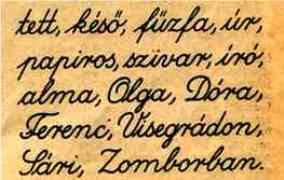 tett, késő, fűzfa, úr,
papiros, szivar, író,
alma, Olga, Dóra,
Ferenc, Visegrádon,
Sári, Zomborban.